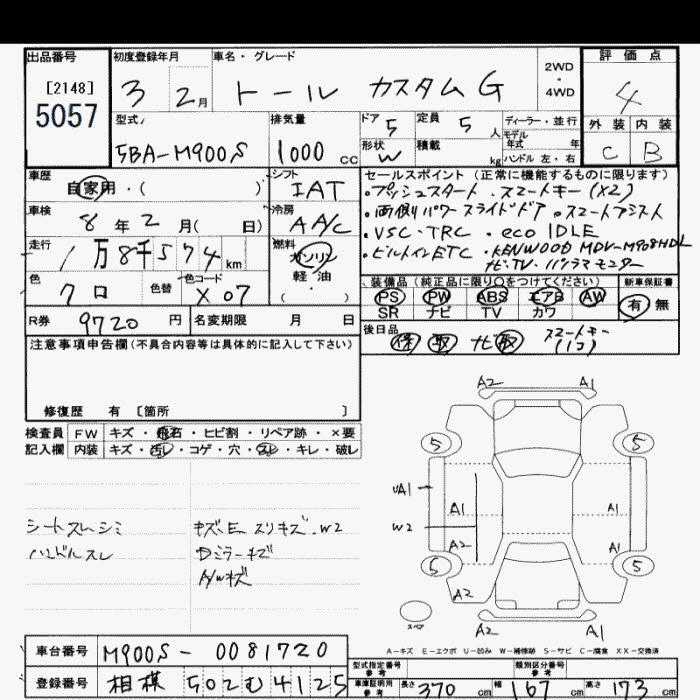 出品番号 初度登録年月 車名・グレード 2WD・4WD 評価点
[2148]
5057 3 2月 トール カスタムG 4
型式 排気量 ドア 5 定員 5人 ディーラー・並行 外装 内装
5BA-M900S 1000cc 形状 W 積載 kg モデル年式 年 ハンドル 左・右 C B
車歴 自家用・( ) シフト IAT
車検 8年2月( 日) 冷房 AA/C
走行 1万8千574km 燃料 ガソリン 軽油 ( )
色 クロ 色替 色コード X07
R券 9720円 名変期限 月 日
セールスポイント(正常に機能するものに限ります)
・プッシュスタート・スマートキー(X2)
・両側パワースライドドア・スマートアシスト
・VSC・TRC・eco IDLE
・ビルトインETC・KENWOOD MDV-M908HDL
ナビ・TV・パノラマモニター
装備品(純正品に限り○をつけてください) 新車保証書
PS PW ABS エアB AW 有 無
SR ナビ TV カワ
後日品 保 取 ナビ取 スマートキー(1コ)
注意事項申告欄(不具合内容等は具体的に記入して下さい)
修復歴 有 [箇所 ]
検査員 FW キズ・飛石・ヒビ割・リペア跡・×要
記入欄 内装 キズ・汚レ・コゲ・穴・スレ・キレ・破レ
シートスレシミ キズ、E スリキズ・W2
ハンドルスレ Dミラーキズ
A/Wキズ
A2 A1
5 5
UA1 A1 A1
W2 A2 A1
5 5
A2
スペア A2 A1
A-キズ E-エクボ U-凹み W-補修跡 S-サビ C-腐食 XX-交換済
車台番号 M900S-0081720
型式指定番号 参考 類別区分番号 参考
登録番号 相模 502む4125
車庫証明用 参考 長さ 370cm 幅 167cm 高さ 173cm